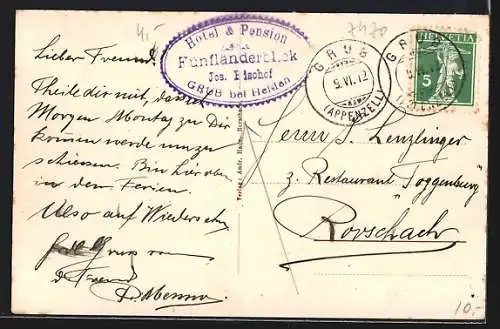 4.-
7470
Hotel & Pension
Fünfländerblick
Jos. Bischof
GRUB bei Heiden
GRUB
9.VI.12
(APPENZELL)
HELVETIA
5
Lieber Freund!
Theile dir mit, dass
Morgen Montag zu Dir
kommen werde um zu
schiessen. Bin hier oben
in den Ferien.
Also auf Wiedersehn
Gruss von
Freund
Herrn J. Lenzlinger
z. Restaurant "Toggenburg"
Rorschach
10.-